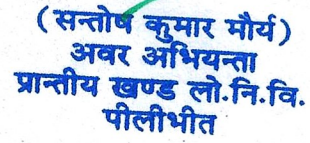 (सन्तोष कुमार मौर्य)
अवर अभियन्ता
प्रान्तीय खण्ड लो.नि.वि.
पीलीभीत